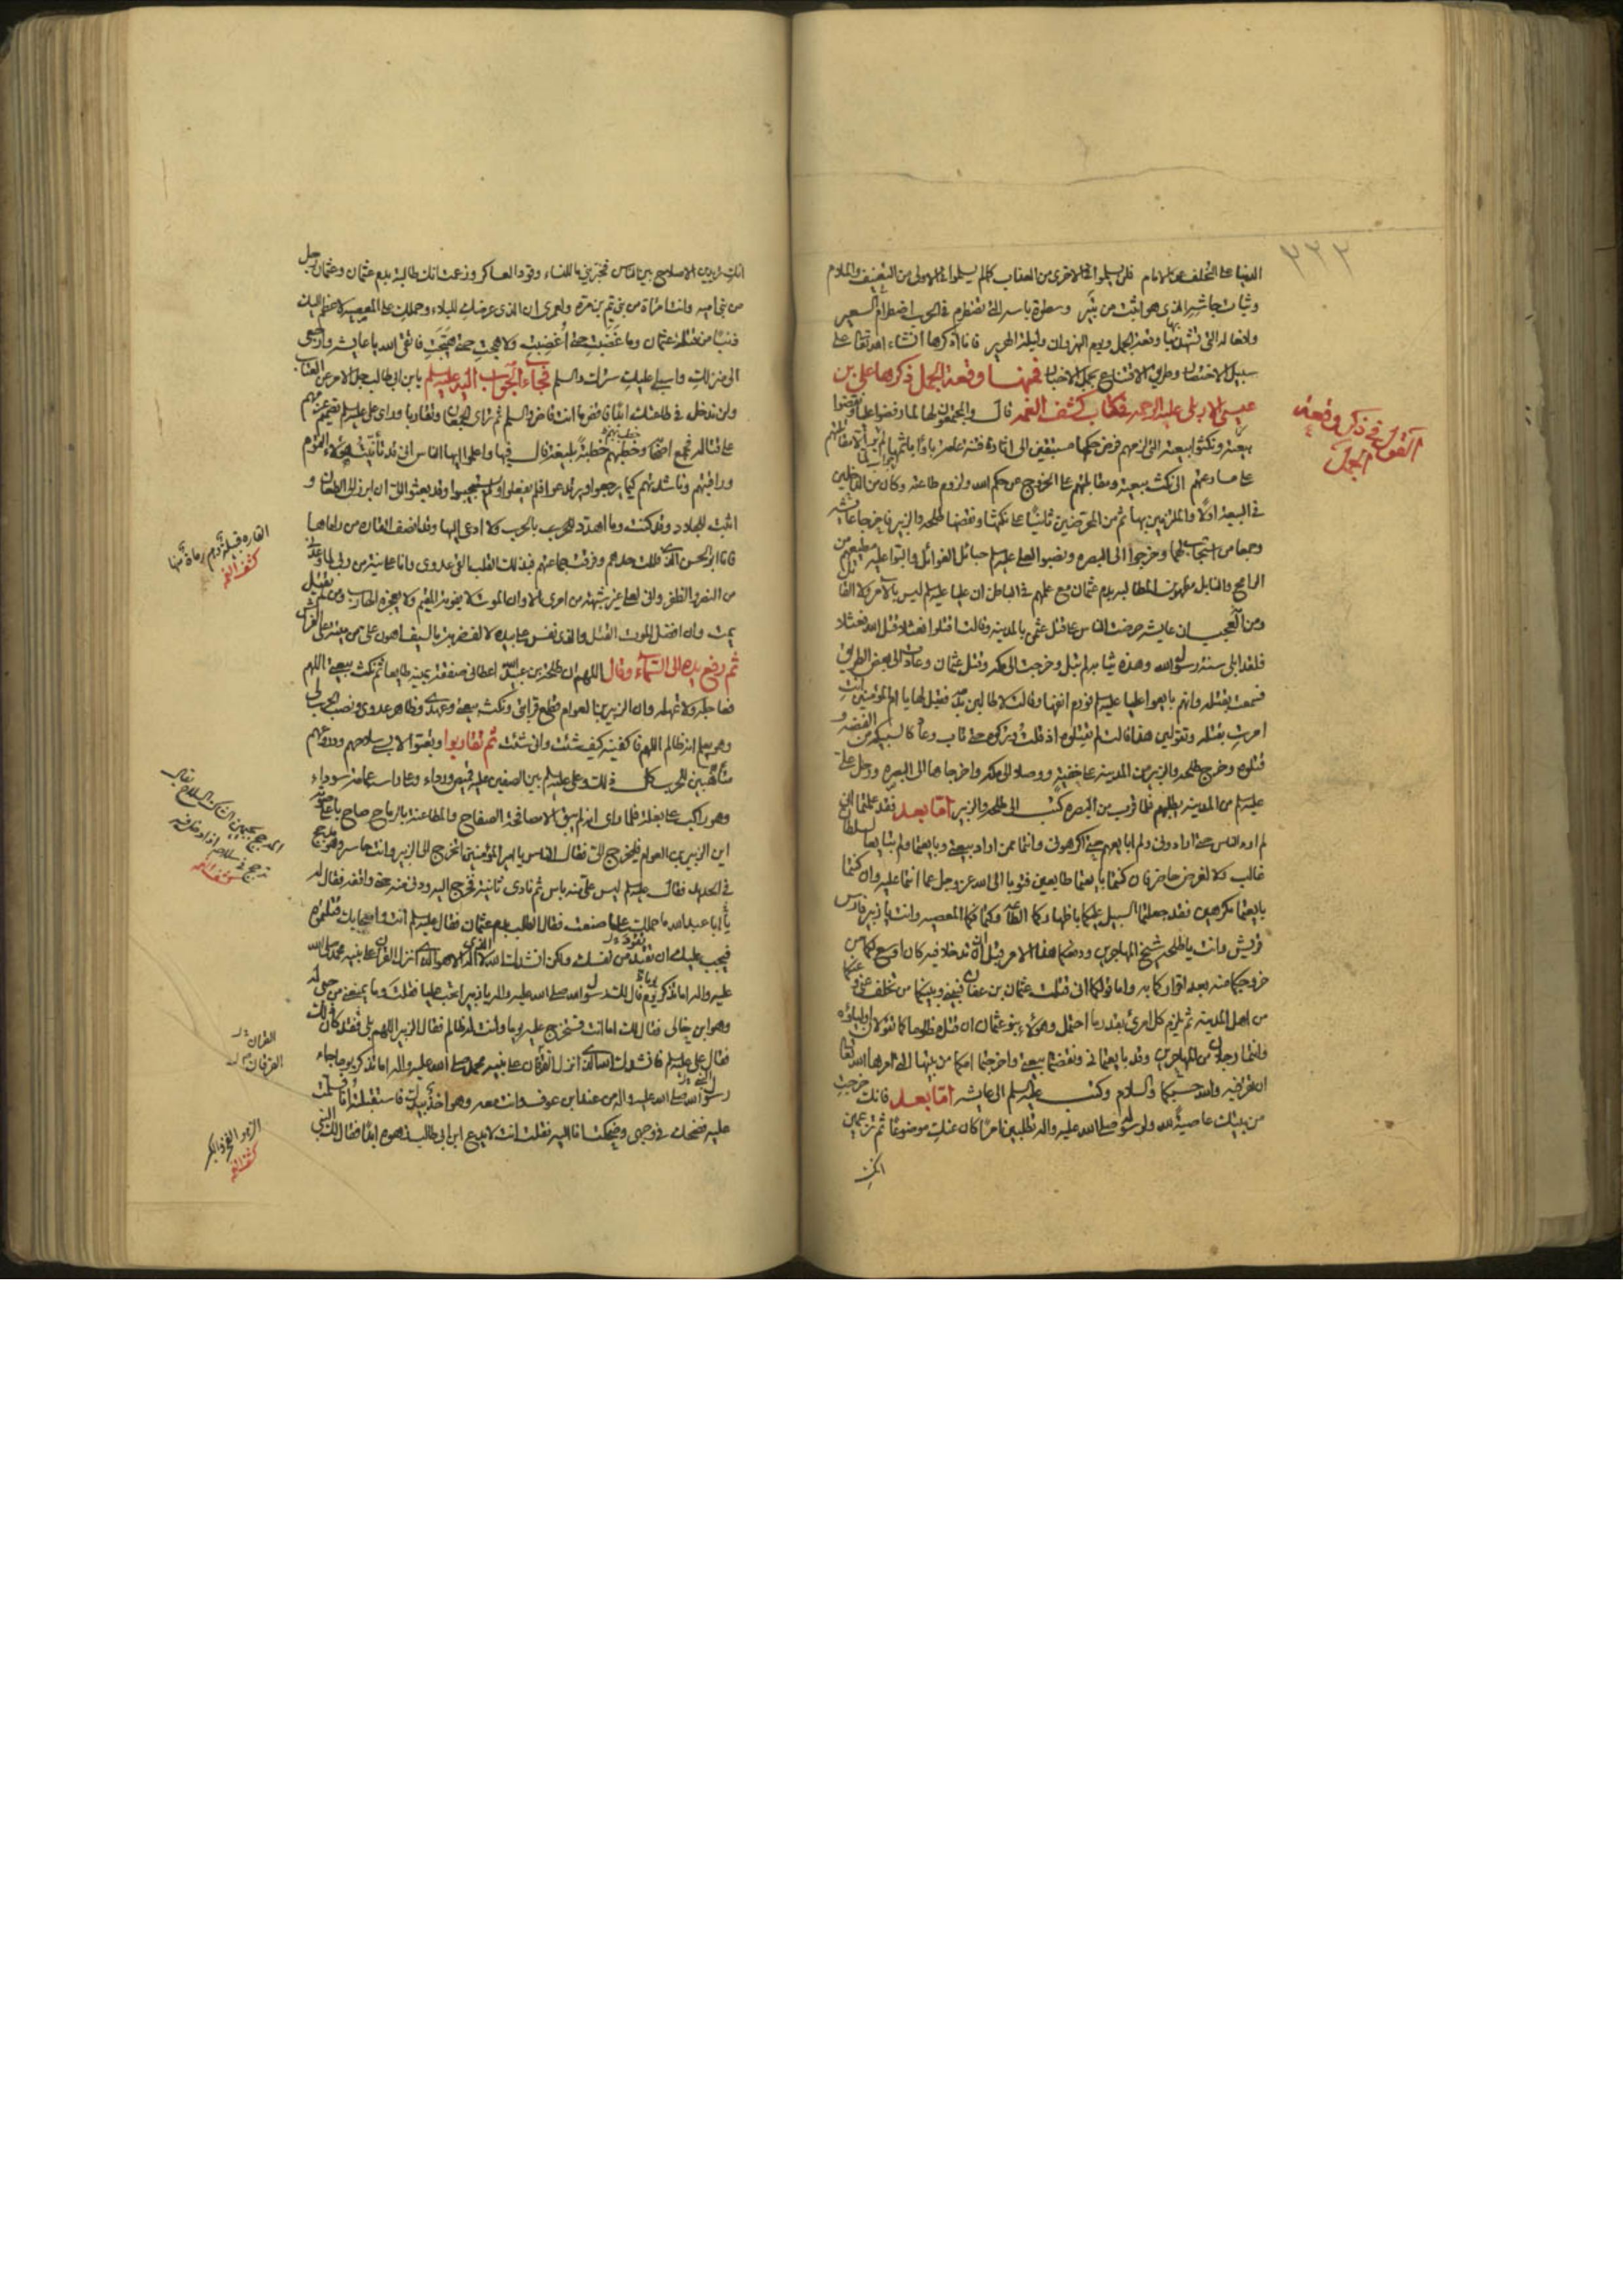 ٢٢٣
القول في ذكر وقعة
الجمل
الدنيا على التخلف عن الامام فلن يسلموا في الاخرى من العذاب كما لم يسلموا في الاولى من التعنيف والملام
وثبات جاشه الذي هو اثبت من ثبير وسطوة باسه التي تضطرم في الحرب اضطرام السعير
وافعاله التي تشهد بها وقعة الجمل ويوم النهروان وليلة الهرير فانا اذكرها انشاء الله تعالى على
سبيل الاختصار وطريق الاقتناع بجمل الاخبار فمنها وقعة الجمل ذكرها علي بن
عيسى الاربلي عليه الرحمه في كتاب كشف الغمه قال والمجتمعون لها لما رفضوا عليا ونقضوا
بيعته ونكثوا بيعته التي لزمهم فرض حكمها مستبقين الى اثارة فتنة عامة باؤا باثمها
على مسارعتهم الى نكث بيعته ومقابلتهم على الخروج عن حكم الله ولزوم طاعته وكان من الداخلين
في البيعة اولا والملتزمين بها ثم من المحرضين ثانيا على نكثها ونقضها طلحه والزبير فاخرجا عايشه
وجمعا من استجاب لهما وخرجوا الى البصره ونصبوا لعلي عليه السلم حبائل الغوائل والبوا عليه مطيعهم من
الرامح والنابل مظهرين المطالبه بدم عثمان مع علمهم في الباطن ان عليا عليه السلم ليس بالامر ولا القاتل
ومن العجب ان عايشه حرضت الناس على قتل عثمن بالمدينه وقالت اقتلوا نعثلا قتل الله نعثلا
فلقد ابلى سنة رسول الله وهذه ثيابه لم تبل وخرجت الى مكه وقتل عثمان وعادت الى بعض الطريق
فسمعت بقتله وانهم بايعوا عليا عليه السلم فورم انفها وقالت لا طالبن بدمه فقيل لها يا ام المؤمنين انت
امرت بقتله وتقولين هذا قالت لم يقتلوه اذ قلت وتركوه حتى تاب وعاد كالسبيكه من الفضه و
قتلوه وخرج طلحه والزبير من المدينه على خفية ووصلا الى مكه واخرجاها الى البصره ورحل علي
عليه السلم من المدينه يطلبهم فلما قرب من البصره كتب الى طلحه والزبير اما بعد فقد علمتما اني
لم ارد الناس حتى ارادوني ولم ابايعهم حتى اكرهوني وانتما ممن اراد بيعتي وبايعتما ولم تبايعا لسلطان
غالب ولا لغرض حاضر فان كنتما بايعتما طايعين فتوبا الى الله عز وجل عما انتما عليه وان كنتما
بايعتما مكرهين فقد جعلتما السبيل عليكما باظهاركما الطاعه وكتمانكما المعصيه وانت يا زبير فارس
قريش وانت يا طلحه شيخ المهاجرين ودفعكما هذا الامر قبل ان تدخلا فيه كان اوسع لكما من
خروجكما منه بعد اقراركما به واما قولكما اني قتلت عثمان بن عفان فبيني وبينكما من تخلف عني وعنكما
من اهل المدينه ثم يلزم كل امرئ بقدر ما احتمل وهؤلاء بنو عثمان ان قتل مظلوما كما تقولان اولياؤه
وانتما رجلان من المهاجرين وقد بايعتماني ونقضتما بيعتي واخرجتما امكما من بيتها الذي امرها الله تعالى
ان تقر فيه والله حسبكما والسلام وكتب عليه السلم الى عايشه اما بعد فانك خرجت
من بيتك عاصية لله ولرسوله صلى الله عليه واله تطلبين امرا كان عنك موضوعا ثم تزعمين
انك تريدين الاصلاح بين الناس فخبريني ما للنساء وقود العساكر وزعمت انك طالبة بدم عثمان وعثمان رجل
من بني اميه وانت امراة من بني تيم بن مره ولعمري ان الذي عرضك للبلاء وحملك على المعصيه لاعظم اليك
ذنبا من قتلة عثمان وما غضبت حتى اغضبت ولا هجت حتى هيجت فاتقي الله يا عايشه وارجعي
الى منزلك واسبلي عليك سترك والسلم فجاء الجواب اليه عليه السلم يابن ابي طالب جل الامر عن العتاب
ولن ندخل في طاعتك ابدا فاقض ما انت قاض والسلم ثم تراءى الجمعان وتقاربا وراى علي عليه السلم تصميم عزمهم
على قتاله فجمع اصحابه وخطبهم خطبة بليغة قال فيها واعلموا ايها الناس اني قد تأنيت هؤلاء القوم
وراقبتهم وناشدتهم كيما يرجعوا ويرتدعوا فلم يفعلوا ولم يستجيبوا وقد بعثوا الي ان ابرز الى الطعان و
اثبت للجلاد وقد كنت وما اهدد بالحرب ولا ادعى اليها وقد انصف القارة من راماها
فانا ابو الحسن الذي فللت حدهم وفرقت جماعتهم فبذلك القلب القى عدوي وانا على بينة من ربي لما وعدني
من النصر والظفر واني لعلى غير شبهة من امري الا وان الموت لا يفوته المقيم ولا يعجزه الهارب ومن لم يقتل
يمت وان افضل الموت القتل والذي نفس علي بيده لالف ضربة بالسيف اهون علي من ميتة على الفراش
ثم رفع يده الى السماء وقال اللهم ان طلحة بن عبيد الله اعطاني صفقة يمينه طايعا ثم نكث بيعتي اللهم
فعاجله ولا تمهله وان الزبير بن العوام قطع قرابتي ونكث بيعتي وعهدي وظاهر عدوي ونصب الحرب لي
وهو يعلم انه ظالم اللهم فاكفنيه كيف شئت وانى شئت ثم تقاربوا وتعبوا لابسي سلاحهم ودروعهم
متأهبين للحرب كل ذلك وعلي عليه السلم بين الصفين عليه قميص ورداء وعلى راسه عمامة سوداء
وهو راكب على بغلة فلما راى انه لم يبق الا مصافحة الصفاح والمطاعنة بالرماح صاح باعلى صوته
اين الزبير بن العوام فليخرج الي فقال الناس يا امير المؤمنين اتخرج الى الزبير وانت حاسر وهو مدجج
في الحديد فقال عليه السلم ليس علي منه باس ثم نادى ثانية فخرج اليه ودنى منه حتى واقفه فقال له
يا ابا عبد الله ما حملك على ما صنعت فقال الطلب بدم عثمان فقال عليه السلم انت واصحابك قتلتموه
فيجب عليك ان تقيد من نفسك ولكن انشدك الله الذي لا اله الا هو الذي انزل الفرقان على نبيه محمد صلى الله
عليه واله اما تذكر يوم قال لك رسول الله صلى الله عليه واله يا زبير اتحب عليا فقلت وما يمنعني من حبه
وهو ابن خالي فقال لك اما انت فستخرج عليه يوما وانت له ظالم فقال الزبير اللهم بلى فقد كان ذلك
فقال علي عليه السلم فانشدك الله الذي انزل الفرقان على نبيه محمد صلى الله عليه واله اما تذكر يوما جاء
رسول الله صلى الله عليه واله من عند ابن عوف وانت معه وهو اخذ بيدك فاستقبلته انا فسلمت
عليه فضحك في وجهي وضحكت انا اليه فقلت انت لا يدع ابن ابي طالب زهوه ابدا فقال لك النبي
القارة قبيلة وهم رماة
كشف الغمه
كشف الغمه
القران
الفرقان
الزهو الفخر والكبر
كشف الغمه